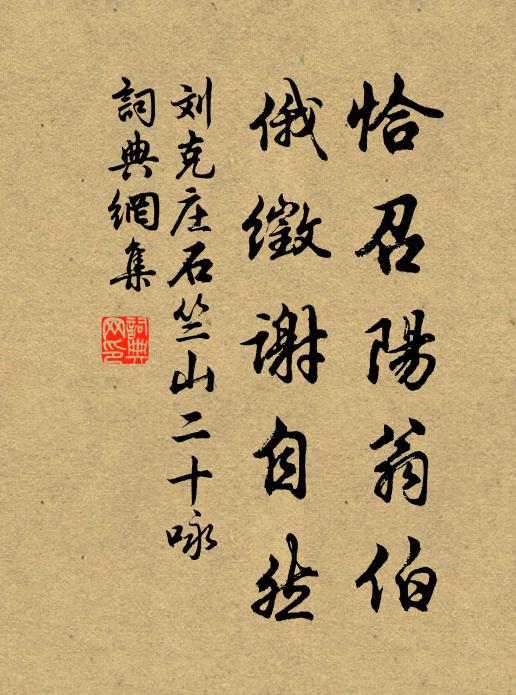 恰召陽翁伯
俄徵謝自然
刘克庄石竺山二十咏
詞典網集
詞典
网印